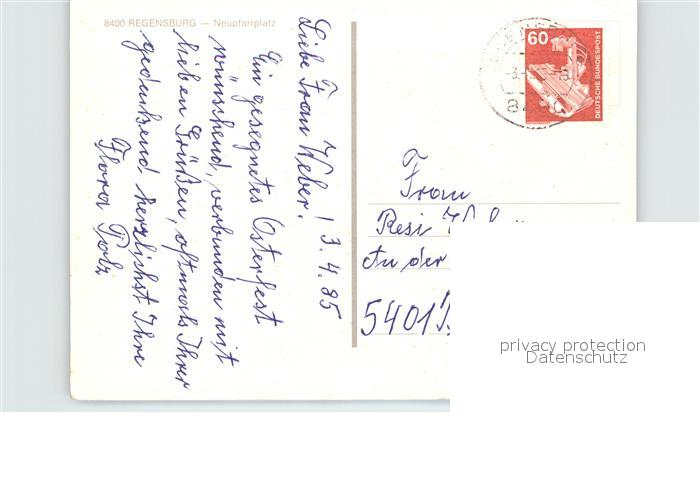 8400 REGENSBURG — Neupfarrplatz
3. 4. 85
Liebe Frau Weber!
Ein gesegnetes Osterfest
wünschend, verbunden mit
lieben Grüßen, oftmals Ihrer
gedenkend herzlichst Ihre
Flora
60
DEUTSCHE BUNDESPOST
Frau
Resi
An der
5401
privacy protection
Datenschutz